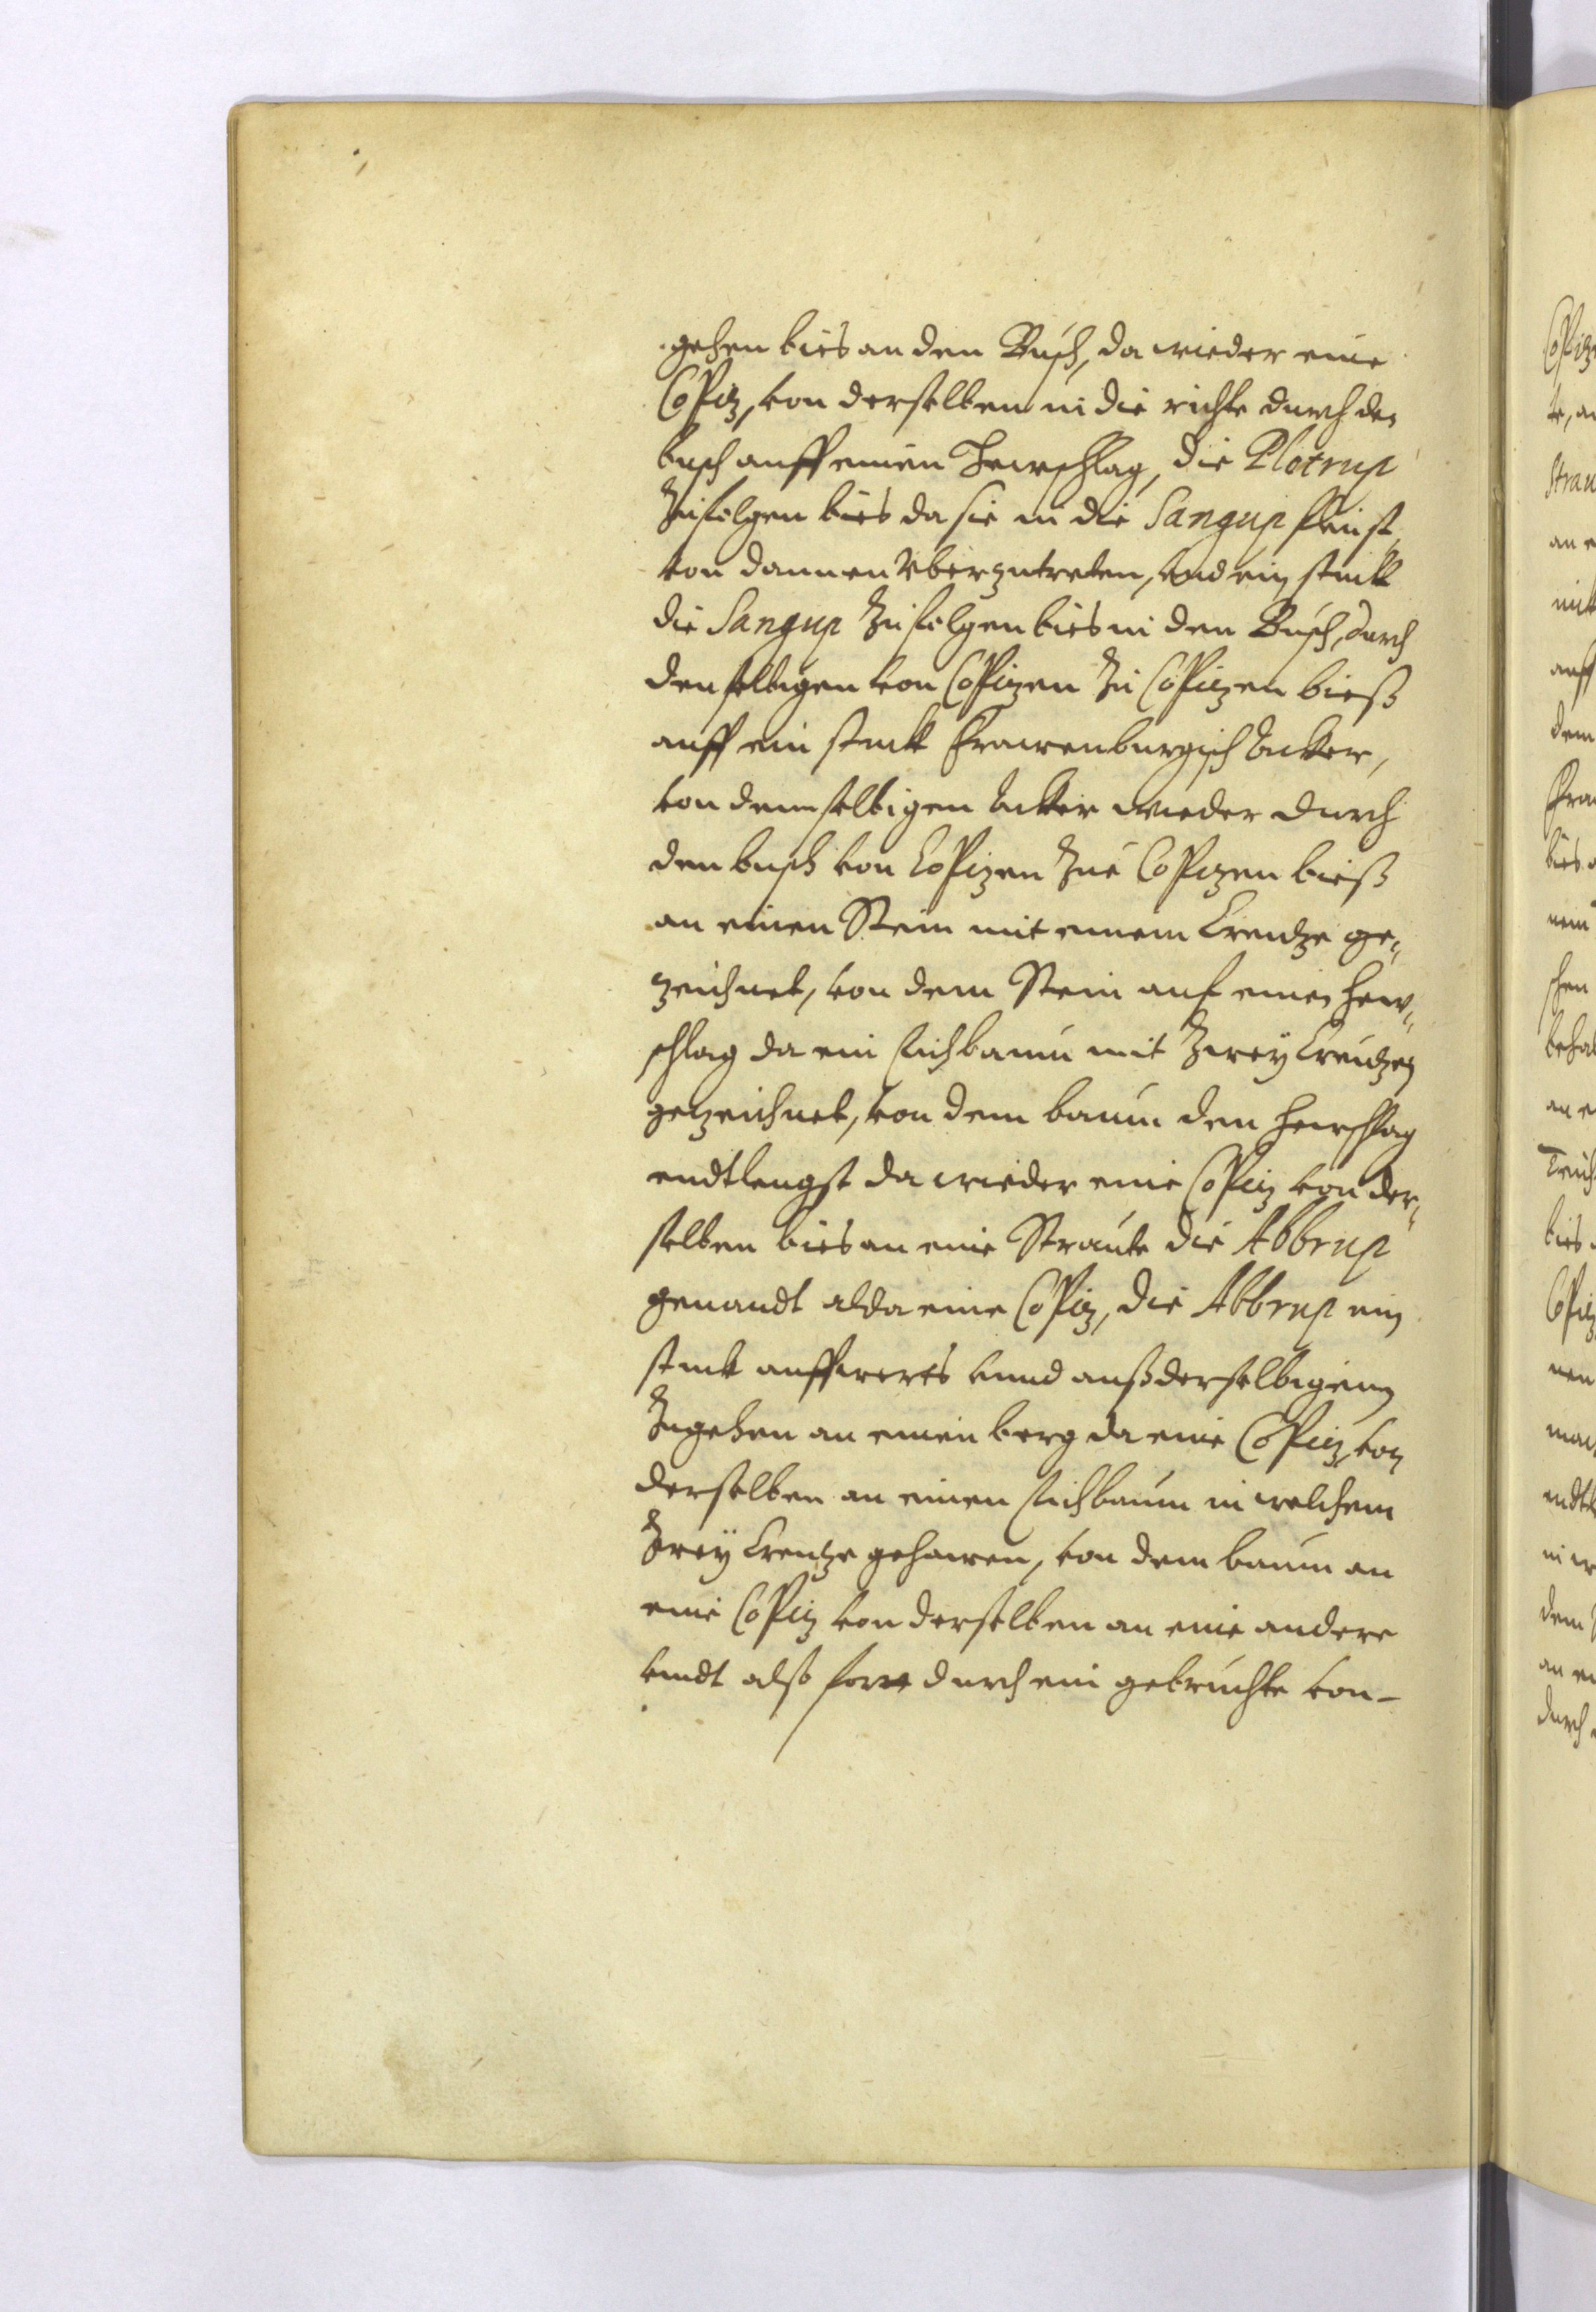 gehen bies an den Busch, da wieder eine
Copitz, von derselben in die richte durch den
busch auff einen Hewschlag, die Plotrup
Zu folgen bies da sie in die Sangup fleust,
von dannen vberzutreten, vnd ein stuckk
die Sangup Zu folgen bies in den Busch, durch
denselbigen von Copitzen Zu Copitzen bieß
auff ein stuckk Frawenburgisch Acker,
von demselbigen Acker wieder durch
den busch von Copitzen Zue Copitzen bieß
an einen Stein mit einem Creutze ge-
zeichnet, von dem Stein auf einen Hew-
schlag da ein Eichbaum mit Zwey Creutzen
gezeichnet, von dem baum den Hewschlag
endtlengst da wieder eine Copitz von der-
selben bies an eine Straute die Abbrup
genandt alda eine Copitz, die Abbrup ein
stuck auffwerts vnnd auß derselbigenn
Zugehen an einen berg da eine Copitz, von
derselben an einen Eichbaum in welchem
Zwey Creutze gehawen, von dem baum an
eine Copitz von derselben an eine andere
vndt also fort durch ein gebruchte von-